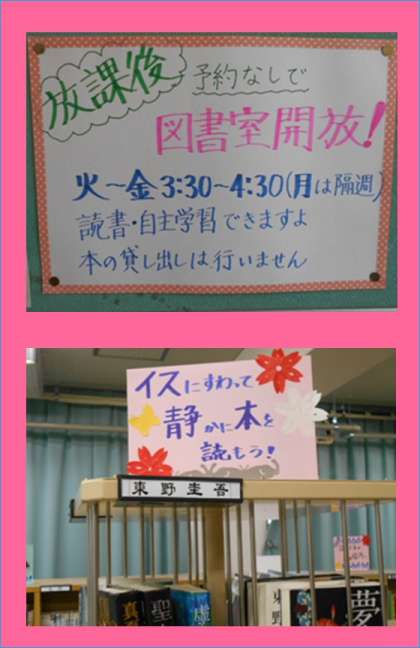 放課後
予約なしで
図書室開放!
火～金3:30～4:30(月は隔週)
読書・自主学習できますよ
本の貸し出しは行いません
イスにすわって
静かに本を
読もう!
東野圭吾
真
聖
虚
東野
夢